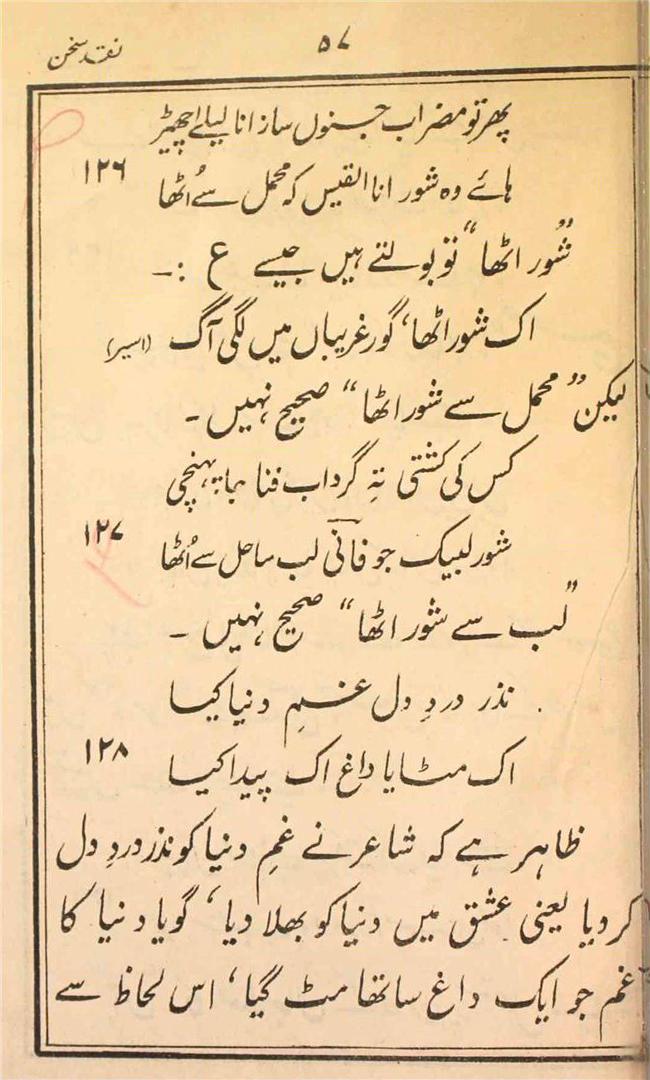 نقد سخن
۵۷
پھر تو مضراب جنوں ساز انا لیلےٰ چھیڑ
ہائے وہ شور انا القیس کہ محمل سے اُٹھا ۱۲۶
”شُور اٹھا“ تو بولتے ہیں جیسے ع :۔
اک شور اٹھا، گور غریباں میں لگی آگ (اسیر)
لیکن ”محمل سے شور اٹھا“ صحیح نہیں۔
کس کی کشتی تہِ گرداب فنا جا پہنچی
شور لبیک جو فانی لب ساحل سے اُٹھا ۱۲۷
”لب سے شور اٹھا“ صحیح نہیں۔
نذر دردِ دل غمِ دنیا کیا
اک مٹایا داغ اک پیدا کیا ۱۲۸
ظاہر ہے کہ شاعر نے غمِ دنیا کو نذر دردِ دل
کر دیا یعنی عشق میں دنیا کو بھلا دیا، گویا دنیا کا
غم جو ایک داغ سا تھا مٹ گیا، اس لحاظ سے